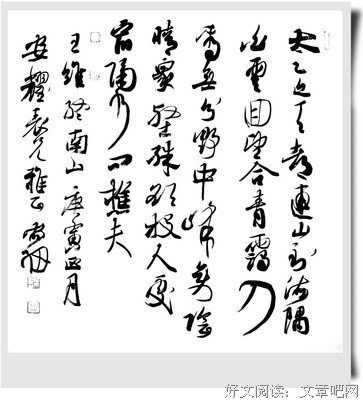 太乙近天都連山到海隅
白雲回望合青靄入
看無分野中峰變陰
晴衆壑殊欲投人處
宿隔水问樵夫
王維終南山 庚寅正月
安耀表兄雅正
好文阅读：文章吧网